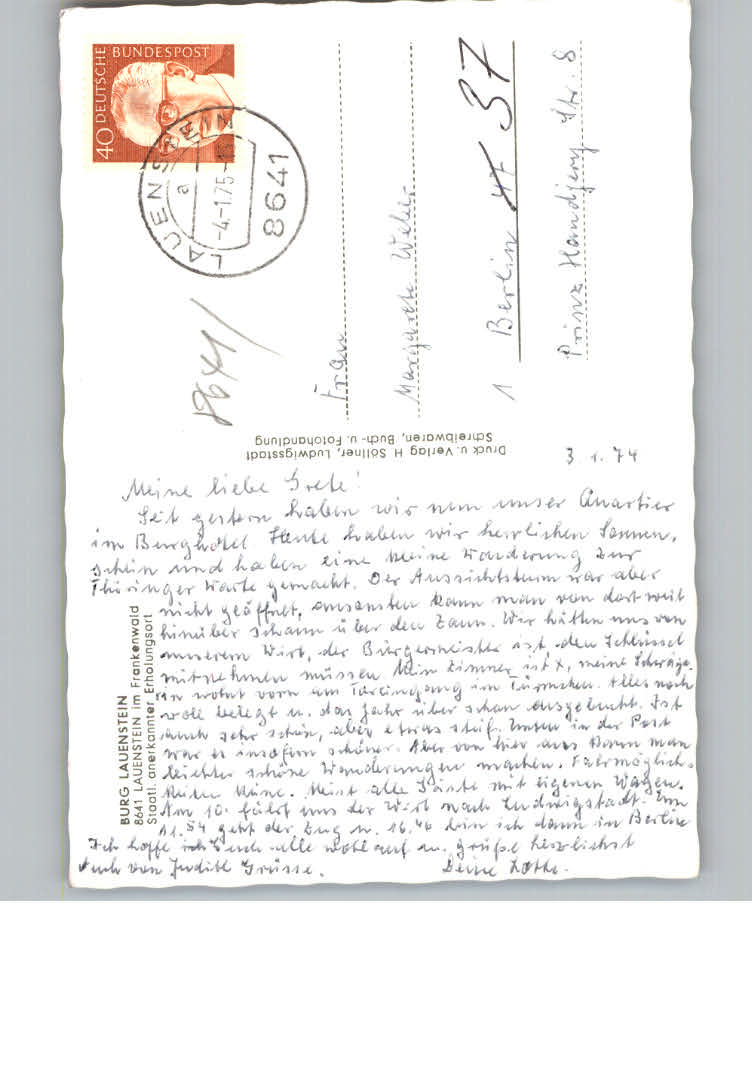 40 DEUTSCHE BUNDESPOST
LAUENSTEIN
a
-4.-1.75-
8641
8641
Frau
Margarete Weber
1 Berlin 47 37
Prinz Handjery Str. 8
Druck u. Verlag H Söllner, Ludwigsstadt
Schreibwaren, Buch- u. Fotohandlung
BURG LAUENSTEIN
8641 LAUENSTEIN im Frankenwald
Staatl. anerkannter Erholungsort
3 1. 74
Meine liebe Grete!
Seit gestern haben wir nun unser Quartier
im Burghotel. Heute haben wir herrlichen Sonnen,
schein und haben eine kleine Wanderung zur
Thüringer Warte gemacht. Der Aussichtsturm war aber
nicht geöffnet, ansonsten kann man von dort weit
hinüber schaun über den Zaun. Wir hätten uns von
unserem Wirt, der Bürgermeister ist, den Schlüssel
mitnehmen müssen. Mein Zimmer ist x, meine Schwäge-
rin wohnt vorn am Toreingang im Türmchen. Alles noch
voll belegt u. das Jahr über schon ausgebucht. Ist
auch sehr schön, aber etwas steif. Unten in der Post
war es insofern schöner. Aber von hier aus kann man
leichter schöne Wanderungen machen. Fahrmöglich-
keiten keine. Meist alle Gäste mit eigenen Wagen.
Am 10. fährt uns der Wirt nach Ludwigstadt. Um
11.54 geht der Zug u. 16.46 bin ich dann in Berlin
Ich hoffe Euch alle wohlauf u. grüße herzlichst
Auch von Judith Grüsse. Deine Lotte.